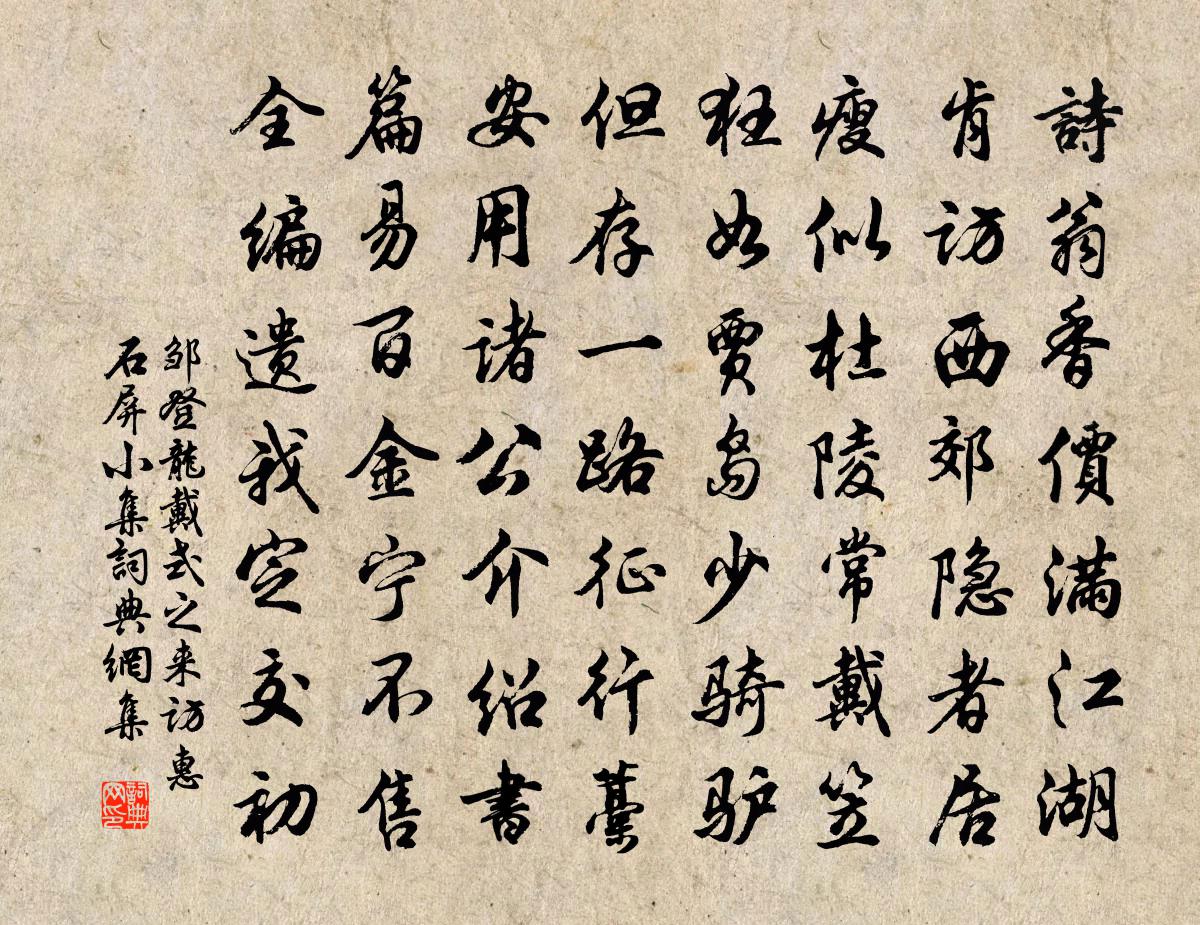 詩翁香價滿江湖
肯访西郊隐者居
瘦似杜陵常戴笠
狂如贾岛少骑驴
但存一路征行藁
安用诸公介绍书
篇易百金宁不售
全编遗我定交初
邹登龍戴式之来访惠
石屏小集詞典網集
詞典网印